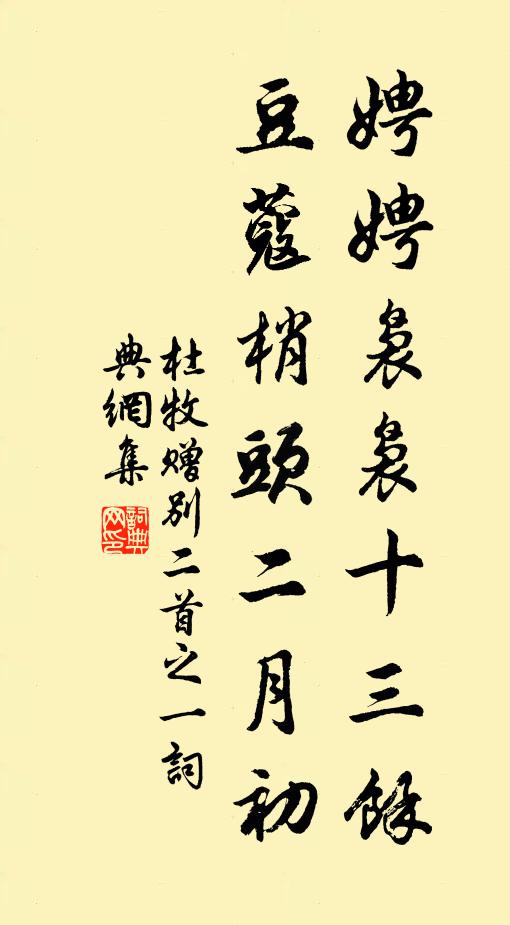 娉娉裊裊十三餘
豆蔻梢頭二月初
杜牧赠别二首之一詞
典網集
詞典网印